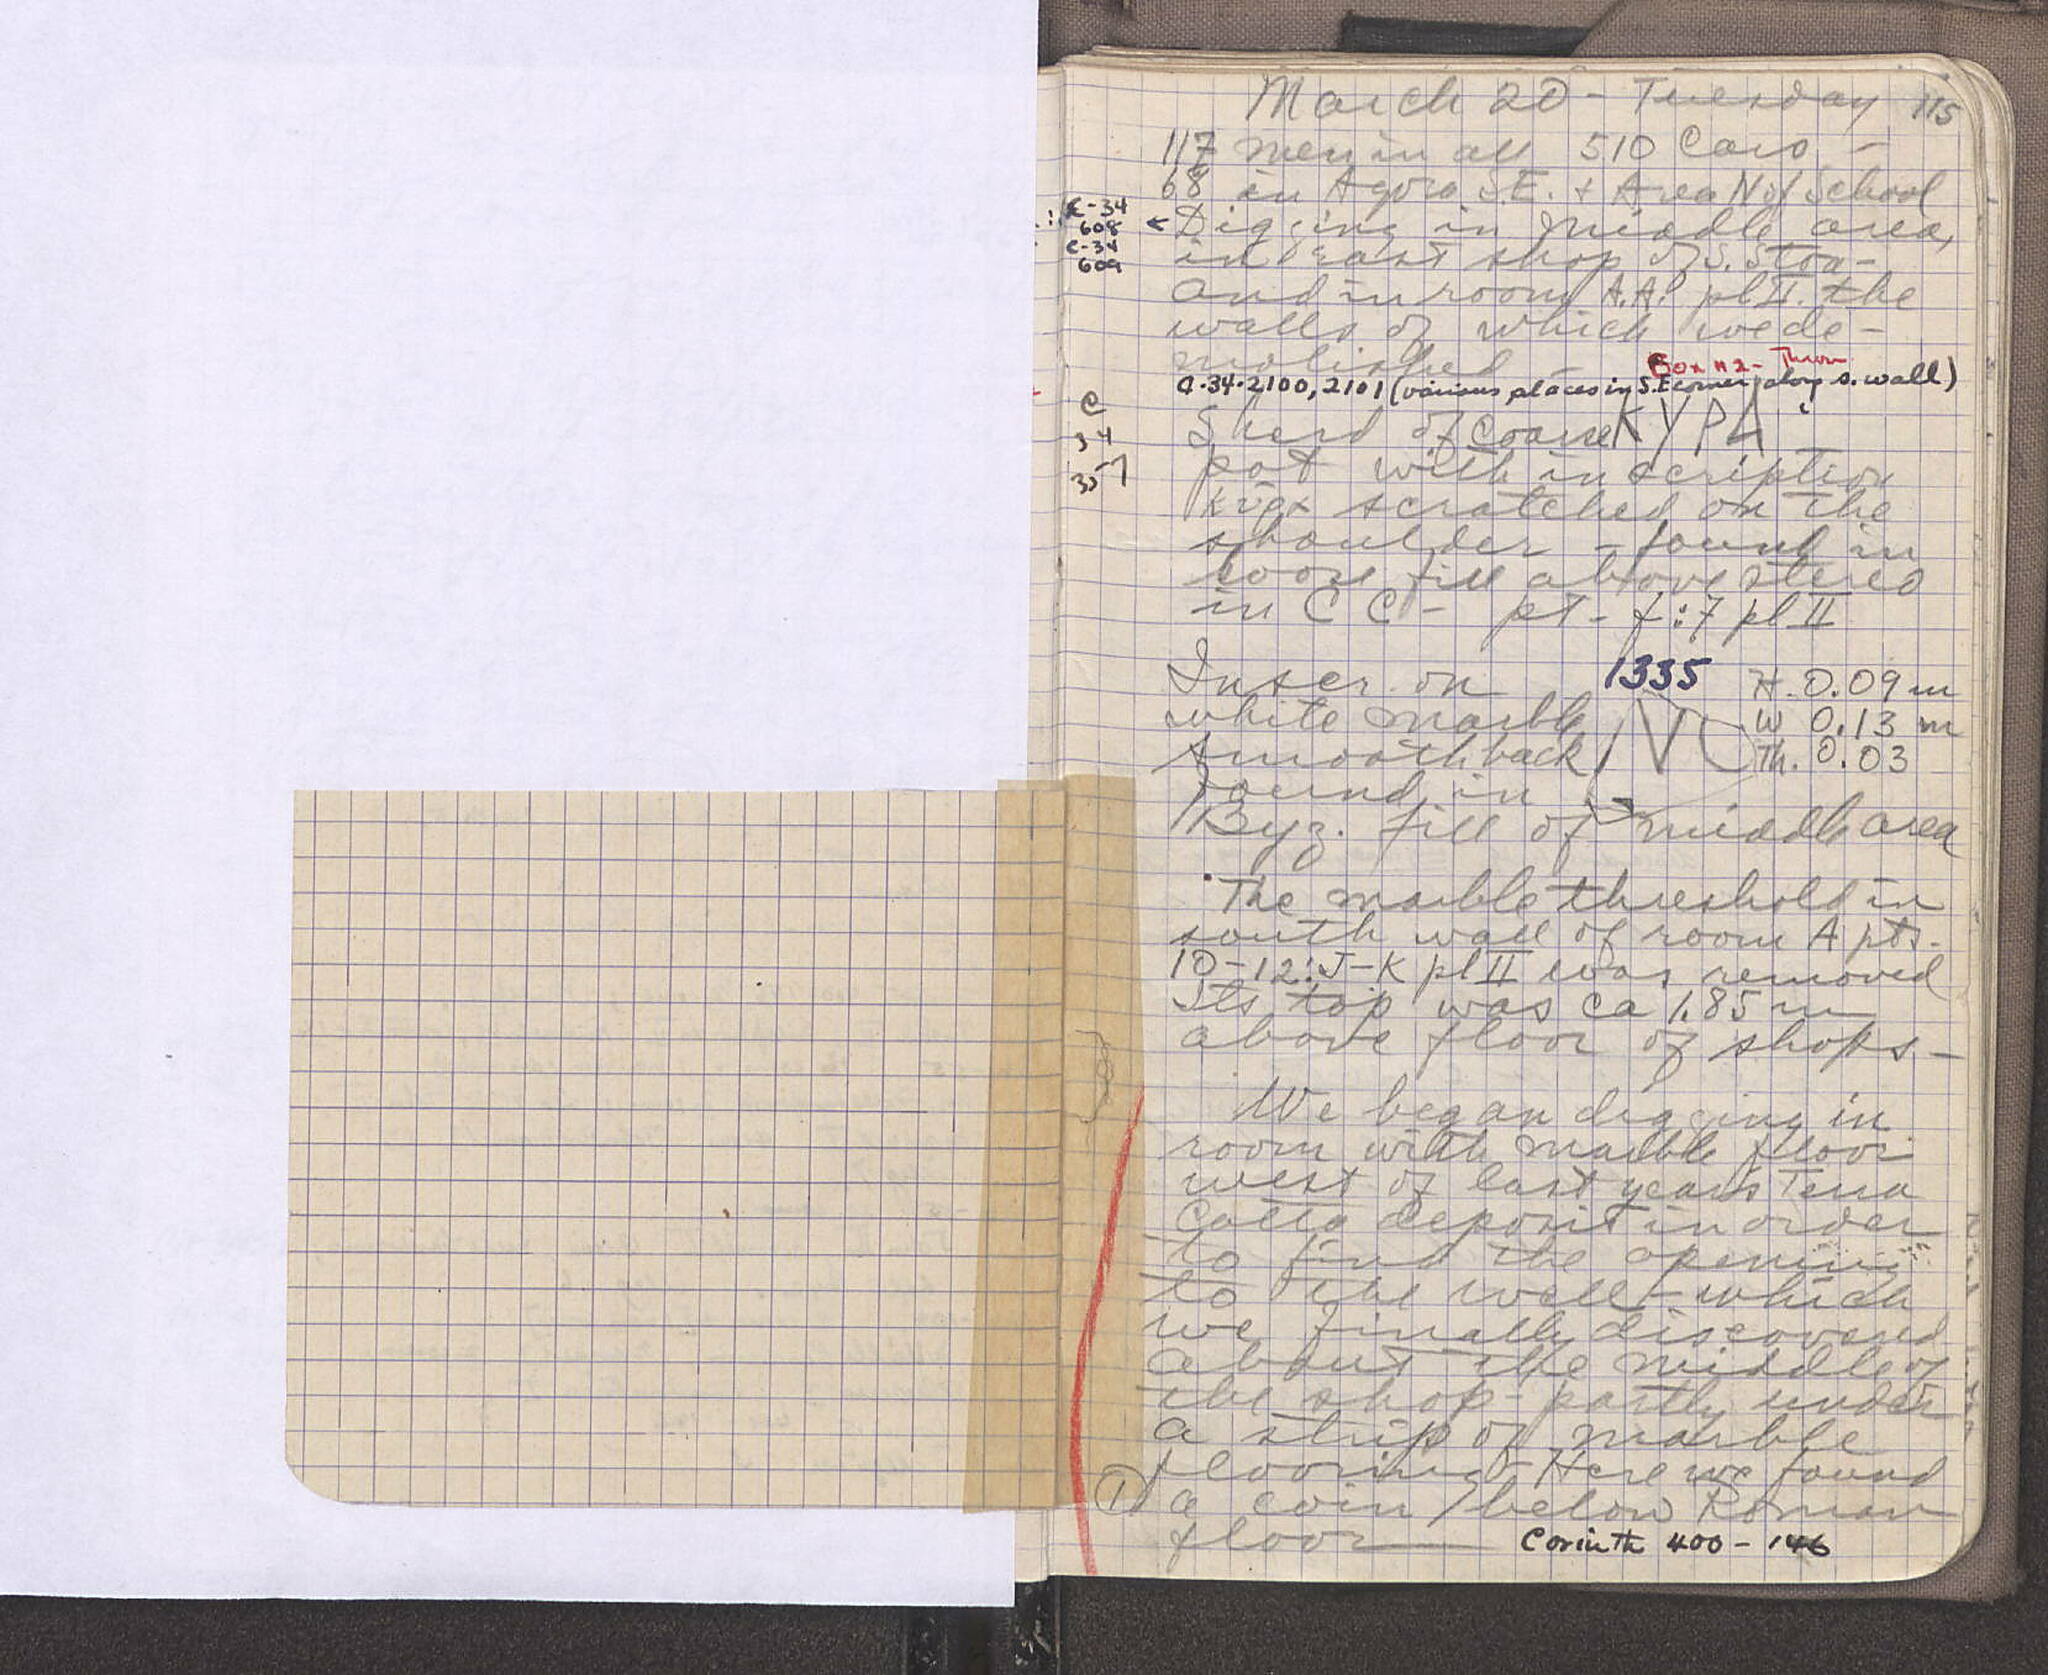 March 20 - Tuesday 115
117 men in all 510 Cars -
68 in Agora S.E. + Area N of School
C-34
608
C-34
609
← Digging in middle area,
in east shop of S. Stoa -
and in room A.A! pl II. the
walls of which we de-
molished -
Box #2 -
C.34.2100, 2101 (various places in S.E corner, along s. wall)
C
34
357
Sherd of coarse ΚΥΡΑ
pot with inscription
κυρα scratched on the
shoulder - found in
loose fill above stereo
in C C - pt - f:7 pl II
1335
Inscr. on H. 0.09 m
white marble NO W 0.13 m
smooth back Th. 0.03
found in
Byz. fill of middle area
The marble threshold in
south wall of room A pts.
10-12:J-K pl II was removed
Its top was ca 1.85 m
above floor of shops -
We began digging in
room with marble floor
west of last years Terra
Cotta deposit in order
to find the opening
to the well - which
we finally discovered
about the middle of
the shop - partly under
a strip of marble
flooring - Here we found
① a coin / below Roman
floor — Corinth 400 - 146